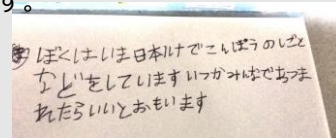 ぼくはいま日本ルナでこんぽうのしごと
などをしていますいつかみんなであつま
れたらいいとおもいます